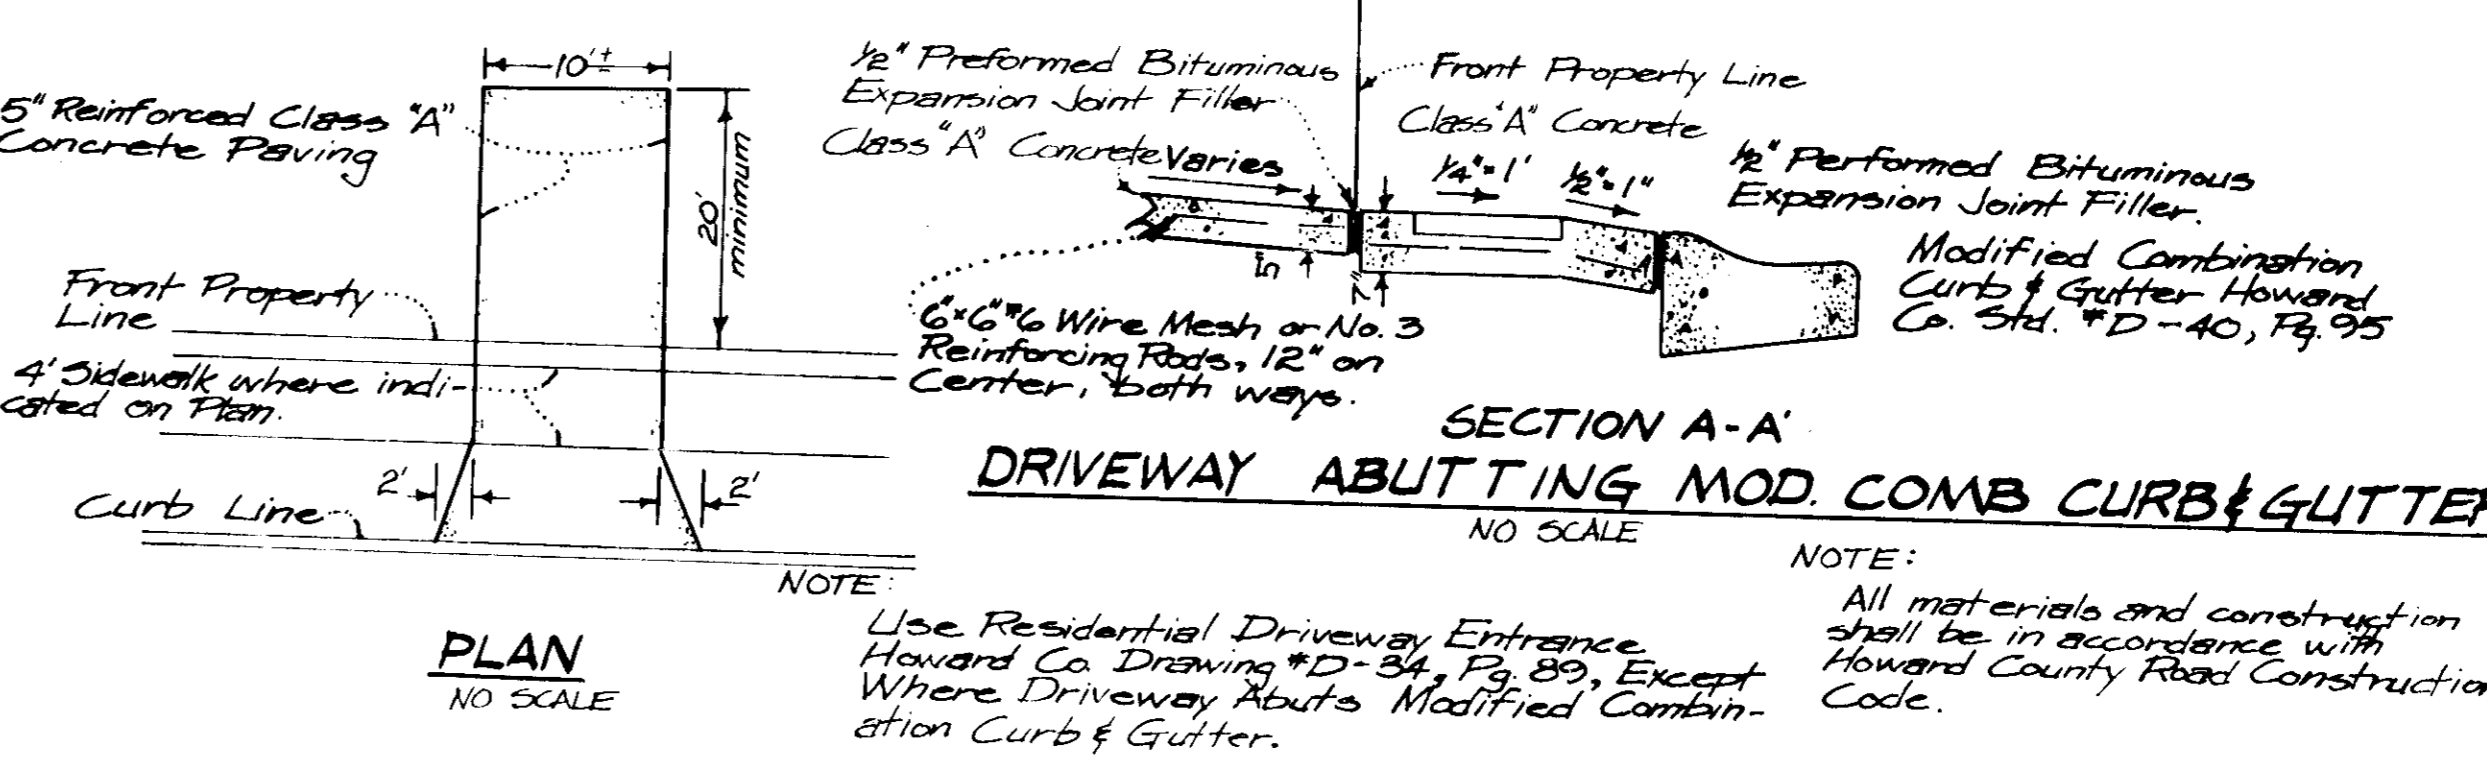 10'±
5" Reinforced Class "A"
Concrete Paving
20'
minimum
Front Property
Line
4' Sidewalk where indi-
cated on Plan.
2'
2'
Curb Line
PLAN
NO SCALE
1/2" Preformed Bituminous
Expansion Joint Filler
Class "A" Concrete
Varies
Front Property Line
Class "A" Concrete
1/4"=1'
1/2"=1"
1/2" Performed Bituminous
Expansion Joint Filler.
Modified Combination
Curb & Gutter Howard
Co. Std. #D-40, Pg. 95
5"
7"
6"x6"#6 Wire Mesh or No. 3
Reinforcing Rods, 12" on
Center, both ways.
SECTION A-A'
DRIVEWAY ABUTTING MOD. COMB CURB & GUTTER
NO SCALE
NOTE:
Use Residential Driveway Entrance
Howard Co. Drawing #D-34, Pg. 89, Except
Where Driveway Abuts Modified Combin-
ation Curb & Gutter.
NOTE:
All materials and construction
shall be in accordance with
Howard County Road Construction
Code.